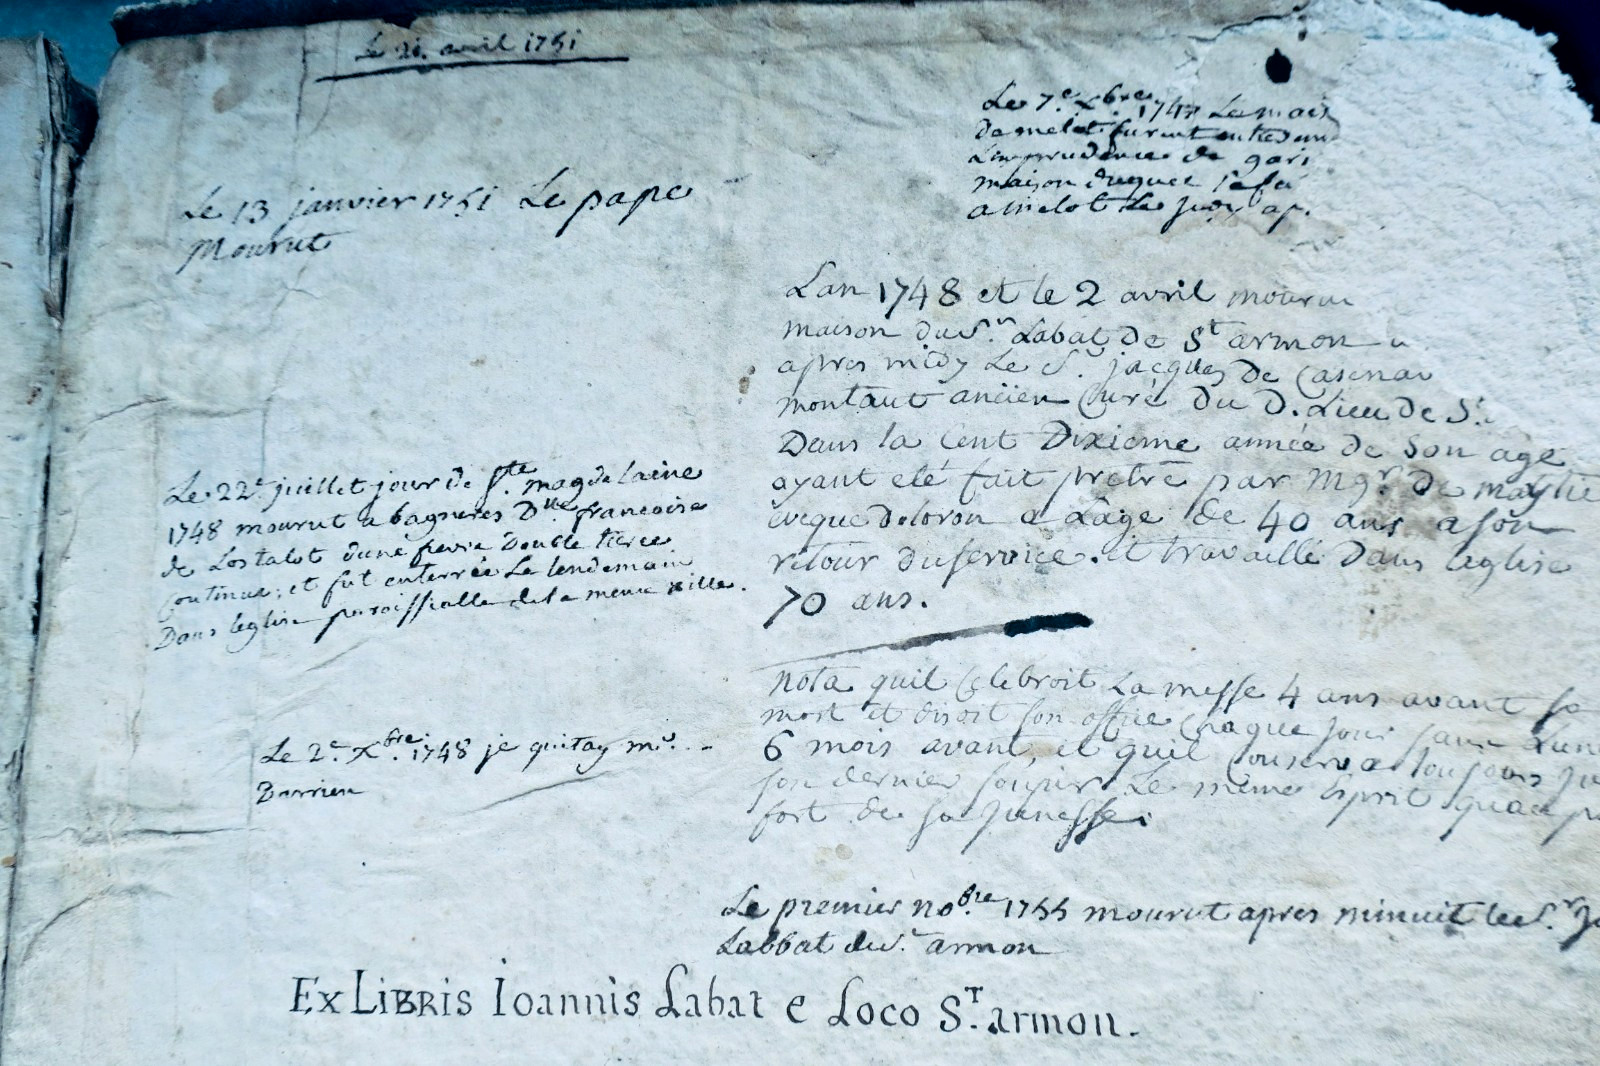 Le 21. avril 1751
Le 13 janvier 1751 Le pape
Mourut
Le 7e. Xbre. 1747 Le mois
maison duquel
amelot Le
Lan 1748 et le 2 avril mouru
maison du Sr. Labat De St armon
apres midy Le Sr. jacques De Casenav
montaut ancien Curé Du D. Lieu De St.
Dans la Cent Dixieme année de Son age
ayant eté fait pretre par Mgr. De maytie
eveque doloron a Lage de 40 ans a son
retour du service. et travaillé Dans leglise
70 ans.
Le 22e juillet jour De Ste. magdelaine
1748 mourut a bagneres Dlle. francoise
de Lostalot dune fievre Double tierce
continue; et fut enterrée Le lendemain
Dans leglise paroissialle de la meme ville.
nota quil Celebroit La messe 4 ans avant sa
mort et disoit son office Chaque jour
6 mois avant, et quil Conserva toujours
son dernier soupir Le meme Esprit
fort de sa junesse.
Le 2e. Xbre. 1748 je quitay mr.
Barrieu
Le premier nobre. 1755 mourut apres minuit le Sr.
Labbat armon
Ex Libris Ioannis Labat e Loco St. armon.